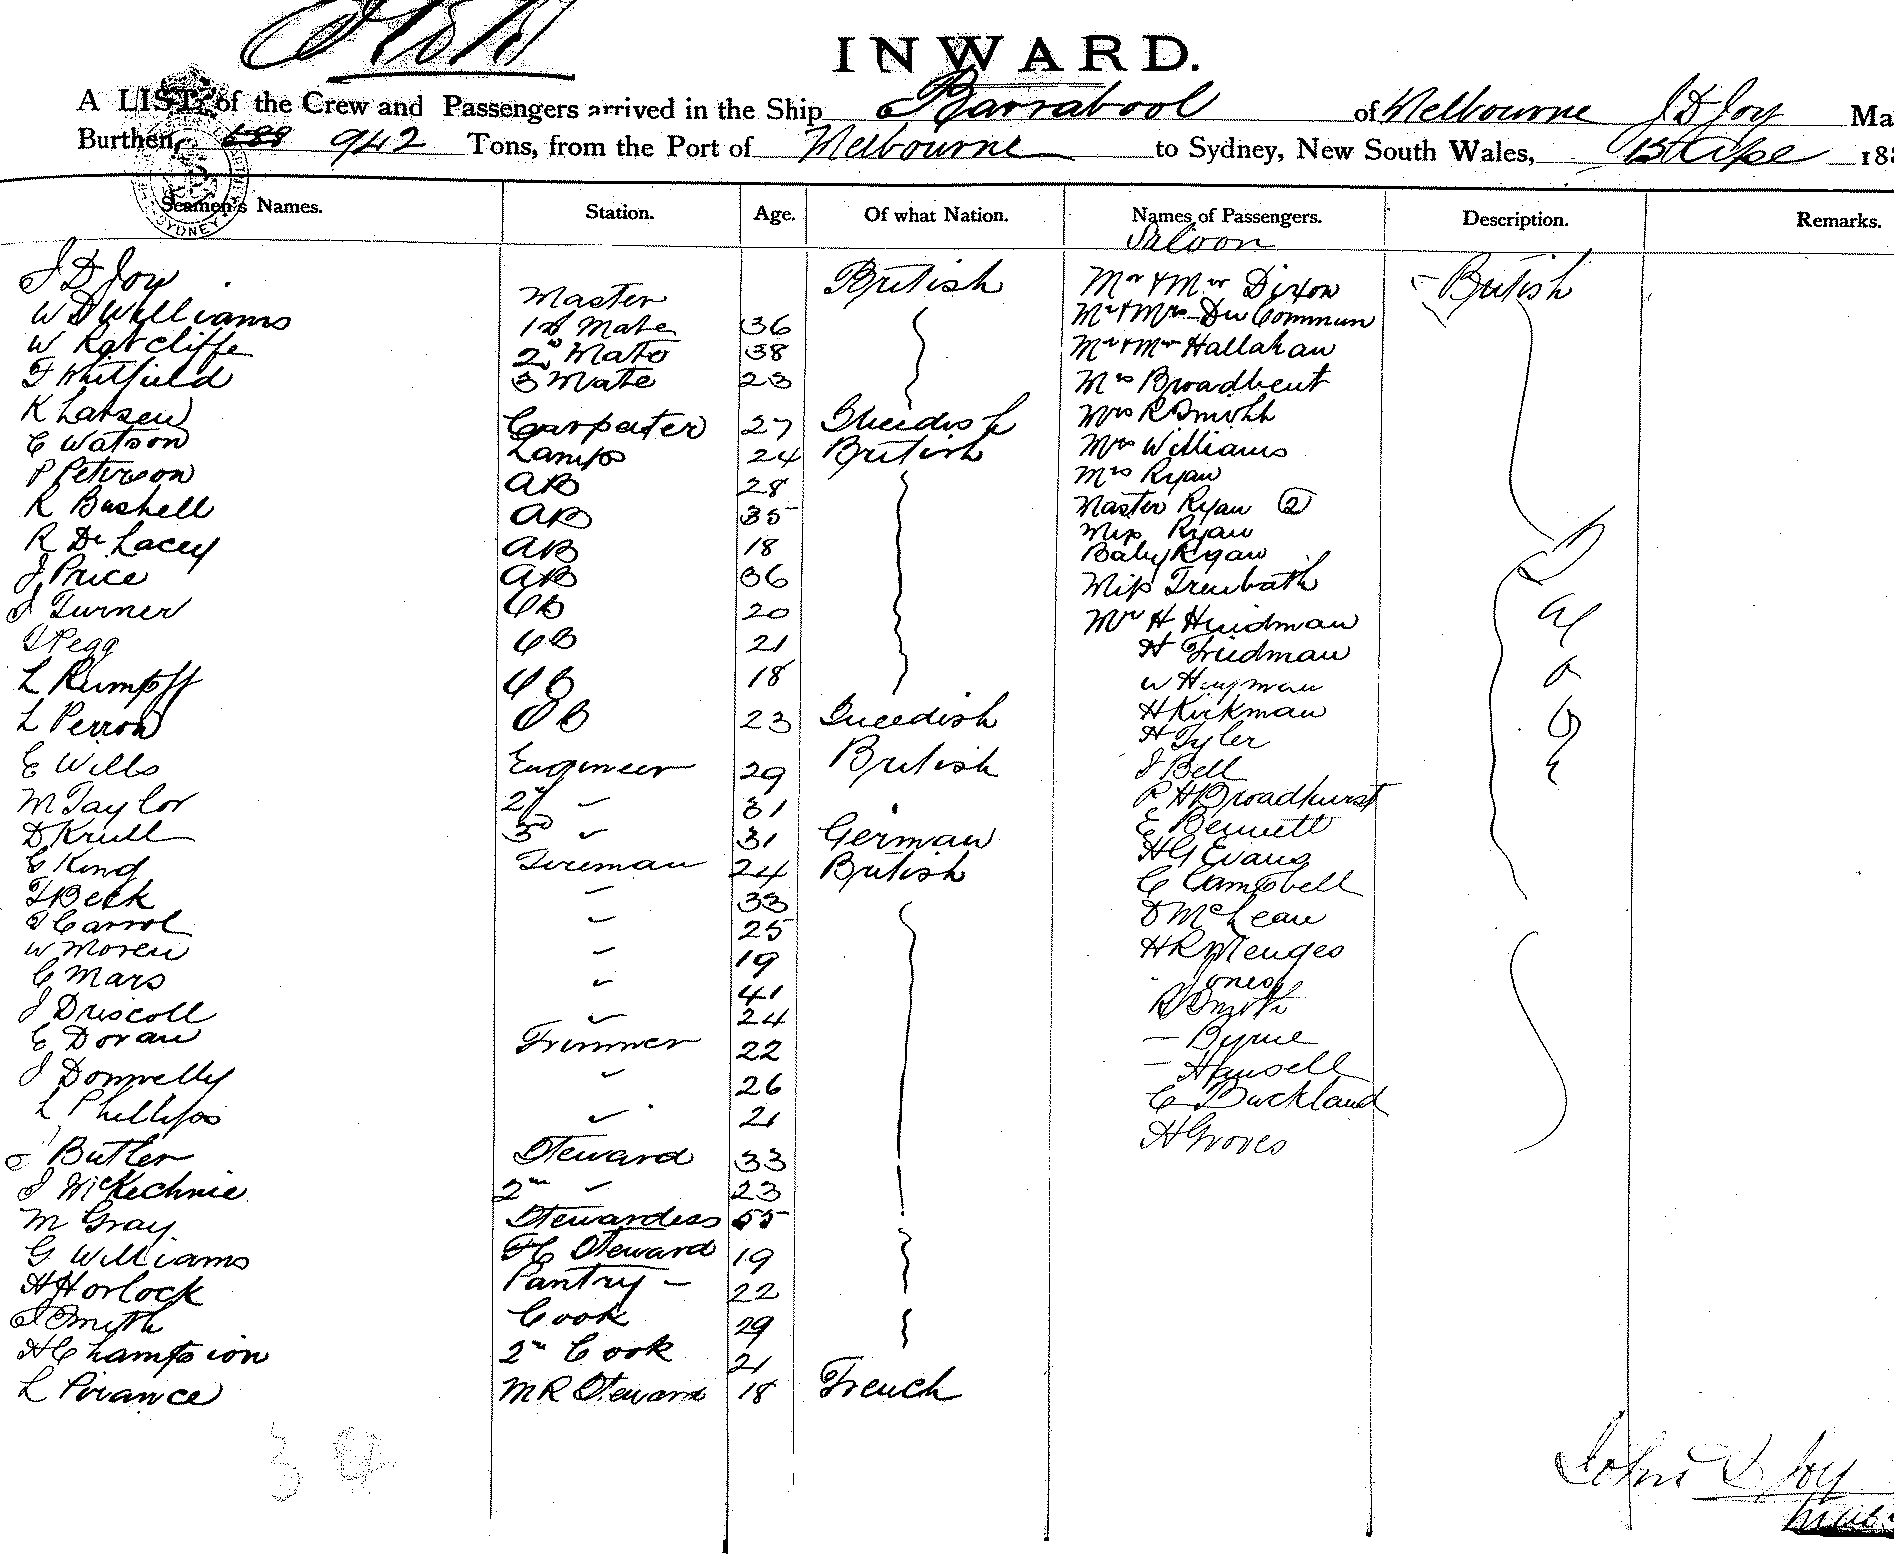 INWARD.
A LIST of the Crew and Passengers arrived in the Ship Barrabool of Melbourne J D Joy Ma
Burthen 688 942 Tons, from the Port of Melbourne to Sydney, New South Wales, 188
Seamen's Names. Station. Age. Of what Nation. Names of Passengers. Description. Remarks.
SYDNEY
Saloon
J D Joy Master British Mr & Mrs Dixon British
W D Williams 1st Mate 36 Mr & Mrs Du Commun
W Ratcliffe 2nd Mate 38 Mr & Mrs Hallahan
F Whitfield 3 Mate 23 Mrs Broadbent
K Larsen Carpeter 27 Sweedish Mrs R Smith
C Watson Lamps 24 British Mrs Williams
P Peterson AB 28 Mrs Ryan
R Bushell AB 35 Master Ryan 2
R De Lacey AB 18 Miss Ryan
Baby Ryan
J Price AB 36 Miss Trenbath
J Turner AB 20 Mr H Hindman
J Pegg AB 21 H Friedman
L Rumpff AB 18 W Hayman
L Perron AB 23 Sweedish H Kirkman
H Tyler
E Wills Engineer 29 British J Bell
M Taylor 2d " 31 R H Broadhurst
D Krull 3rd " 31 German E Bennett
G King Fireman 24 British H G Evans
T Beck " 33 C Campbell
J Carrol " 25 D McLean
W Moren " 19 H R Menges
C Mars " 41 Jones
J Driscoll " 24 R Smith
E Doran Trimmer 22 – Byrne
J Donnelly " 26 – Hansell
L Phillips " 21 C Buckland
H Groves
Butler Steward 33
J McKechnie 2nd " 23
M Gray Stewardess 55
G Williams FC Steward 19
H Horlock Pantry – 22
J Smith Cook 29
H Champion 2nd Cook 21
L Pirance MR Steward 18 French
34
John D Joy